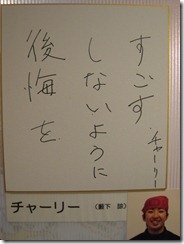 すごす
しないように
後悔を
チャーリー
チャーリー
(薮下 諒)